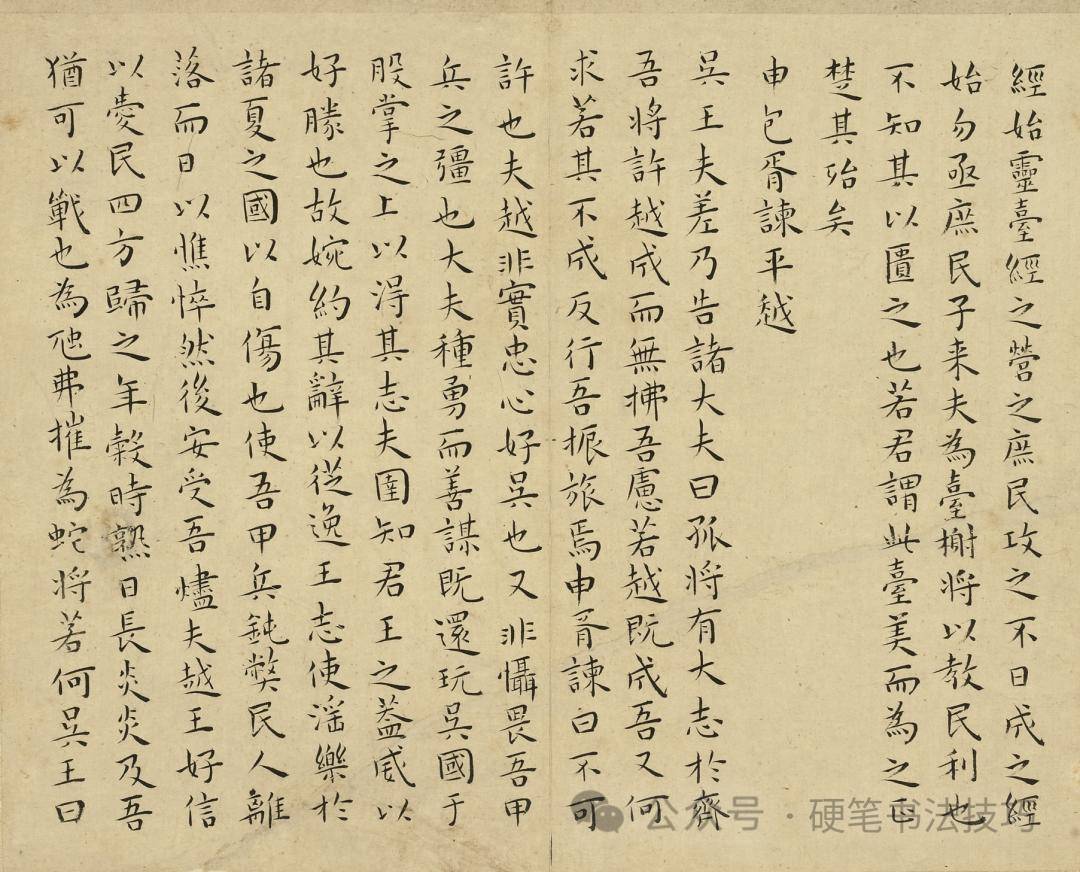 經始靈臺經之營之庶民攻之不日成之經
始勿亟庶民子来夫為臺榭将以教民利也
不知其以匱之也若君謂此臺美而為之正
楚其殆矣
申包胥諫平越
吳王夫差乃告諸大夫曰孤将有大志於齊
吾将許越成而無拂吾慮若越既成吾又何
求若其不成反行吾振旅焉申胥諫曰不可
許也夫越非實忠心好吳也又非懾畏吾甲
兵之彊也大夫種勇而善謀既還玩吳國于
股掌之上以淂其志夫圉知君王之葢威以
好勝也故婉約其辭以從逸王志使滛樂於
諸夏之國以自傷也使吾甲兵鈍獘民人離
落而日以憔悴然後安受吾燼夫越王好信
以愛民四方歸之年穀時熟日長炎炎及吾
猶可以戰也為虺弗摧為蛇将若何吳王曰
公众号·硬笔书法技巧